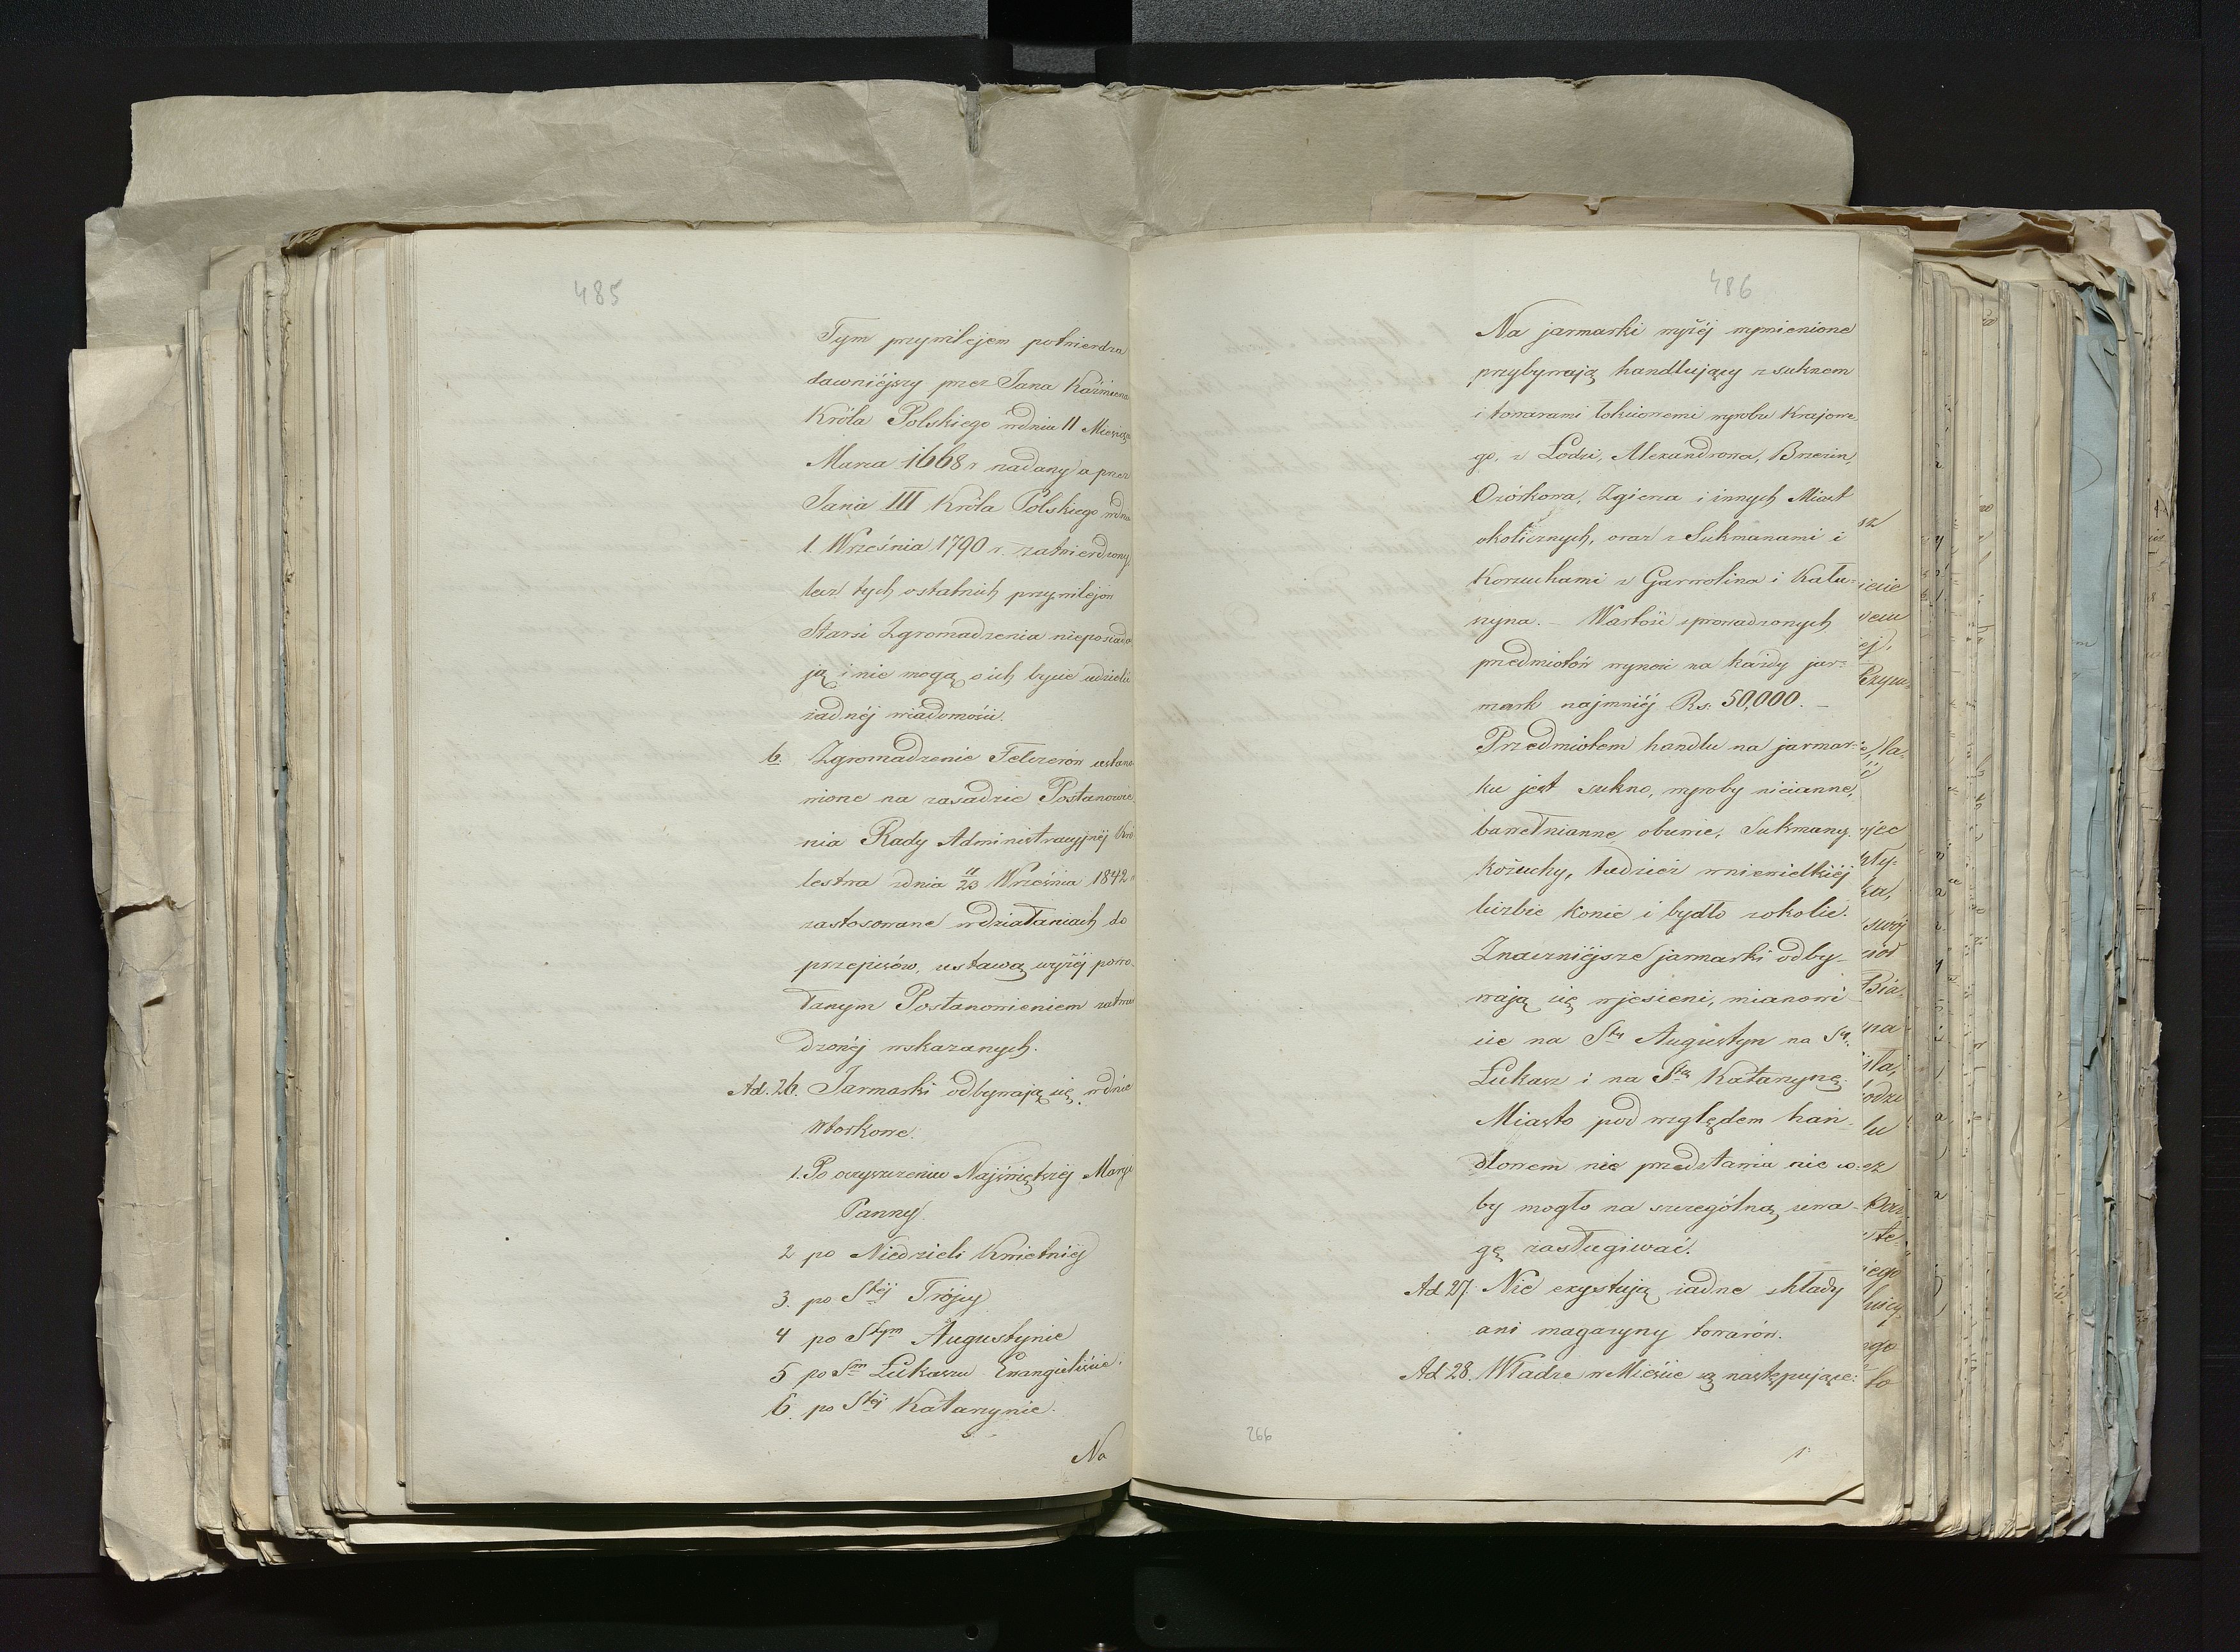 485
Tym przywilejem potwierdza
dawniéjszy przez Jana Kaźmierza
Króla Polskiego wdniu 11 Miesiąca
Marca 1668 r nadany a przez
Jana III Króla Polskiego wdniu
1. Września 1790 r. zatwierdzony,
lecz tych ostatnich przywilejów
Starsi Zgromadzenia nieposiada
ją i nie mogą o ich bycie udzielić
żadnéj wiadomości.
6. Zgromadzenie Felczerów ustano
wione na zasadzie Postanowie
nia Rady Administracyjnéj Kró
lestwa zdnia 11/23 Września 1842 r
zastosowane wdziałaniach do
przepisów, ustawą wyżéj powo-
łanym Postanowieniem zatwier
dzonéj wskazanych.
Ad. 26. Jarmarki odbywają się wdnie
Wtorkowe.
1. Po oczyszczeniu Najświętszéj Maryi
Panny.
2 po Niedzieli Kwietniéj
3. po Stéj Trójcy
4 po Stym Augustynie
5 po Sm Łukaszu Ewangieliście.
6. po Stéj Katarzynie.
Na
486
Na jarmarki wyżéj wymienione
przybywają handlujący z suknem
i towarami łokciowemi wyrobu Krajowe
go, z Łodzi, Alexandrowa, Brzezin,
Ozórkowa, Zgierza i innych Miast
okolicznych, oraz z Sukmanami i
Korzuchami z Garwolina i Kału-
szyna. – Wartość sprowadzonych
przedmiotów wynosi na każdy jar-
mark najmniéj Rs. 50,000. –
Przedmiotem handlu na jarmar-
ku jest sukno, wyroby nicianne,
bawełnianne obuwie, Sukmany.
kożuchy, tudzież wniewielkiéj
liczbie konie i bydło zokolic.
Znaczniéjsze jarmarki odby-
wają się wjesieni, mianowi
cie na Sty Augustyn na Sy
Łukasz i na Stą Katarzynę.
Miasto pod względem han-
dlowem nie przedstawia nic co-
by mogło na szczególną uwa-
gę zasługiwać.
Ad 27. Nie exystują żadne składy
ani magazyny towarów.
Ad 28. Władze w Mieście są następujące:
266
1